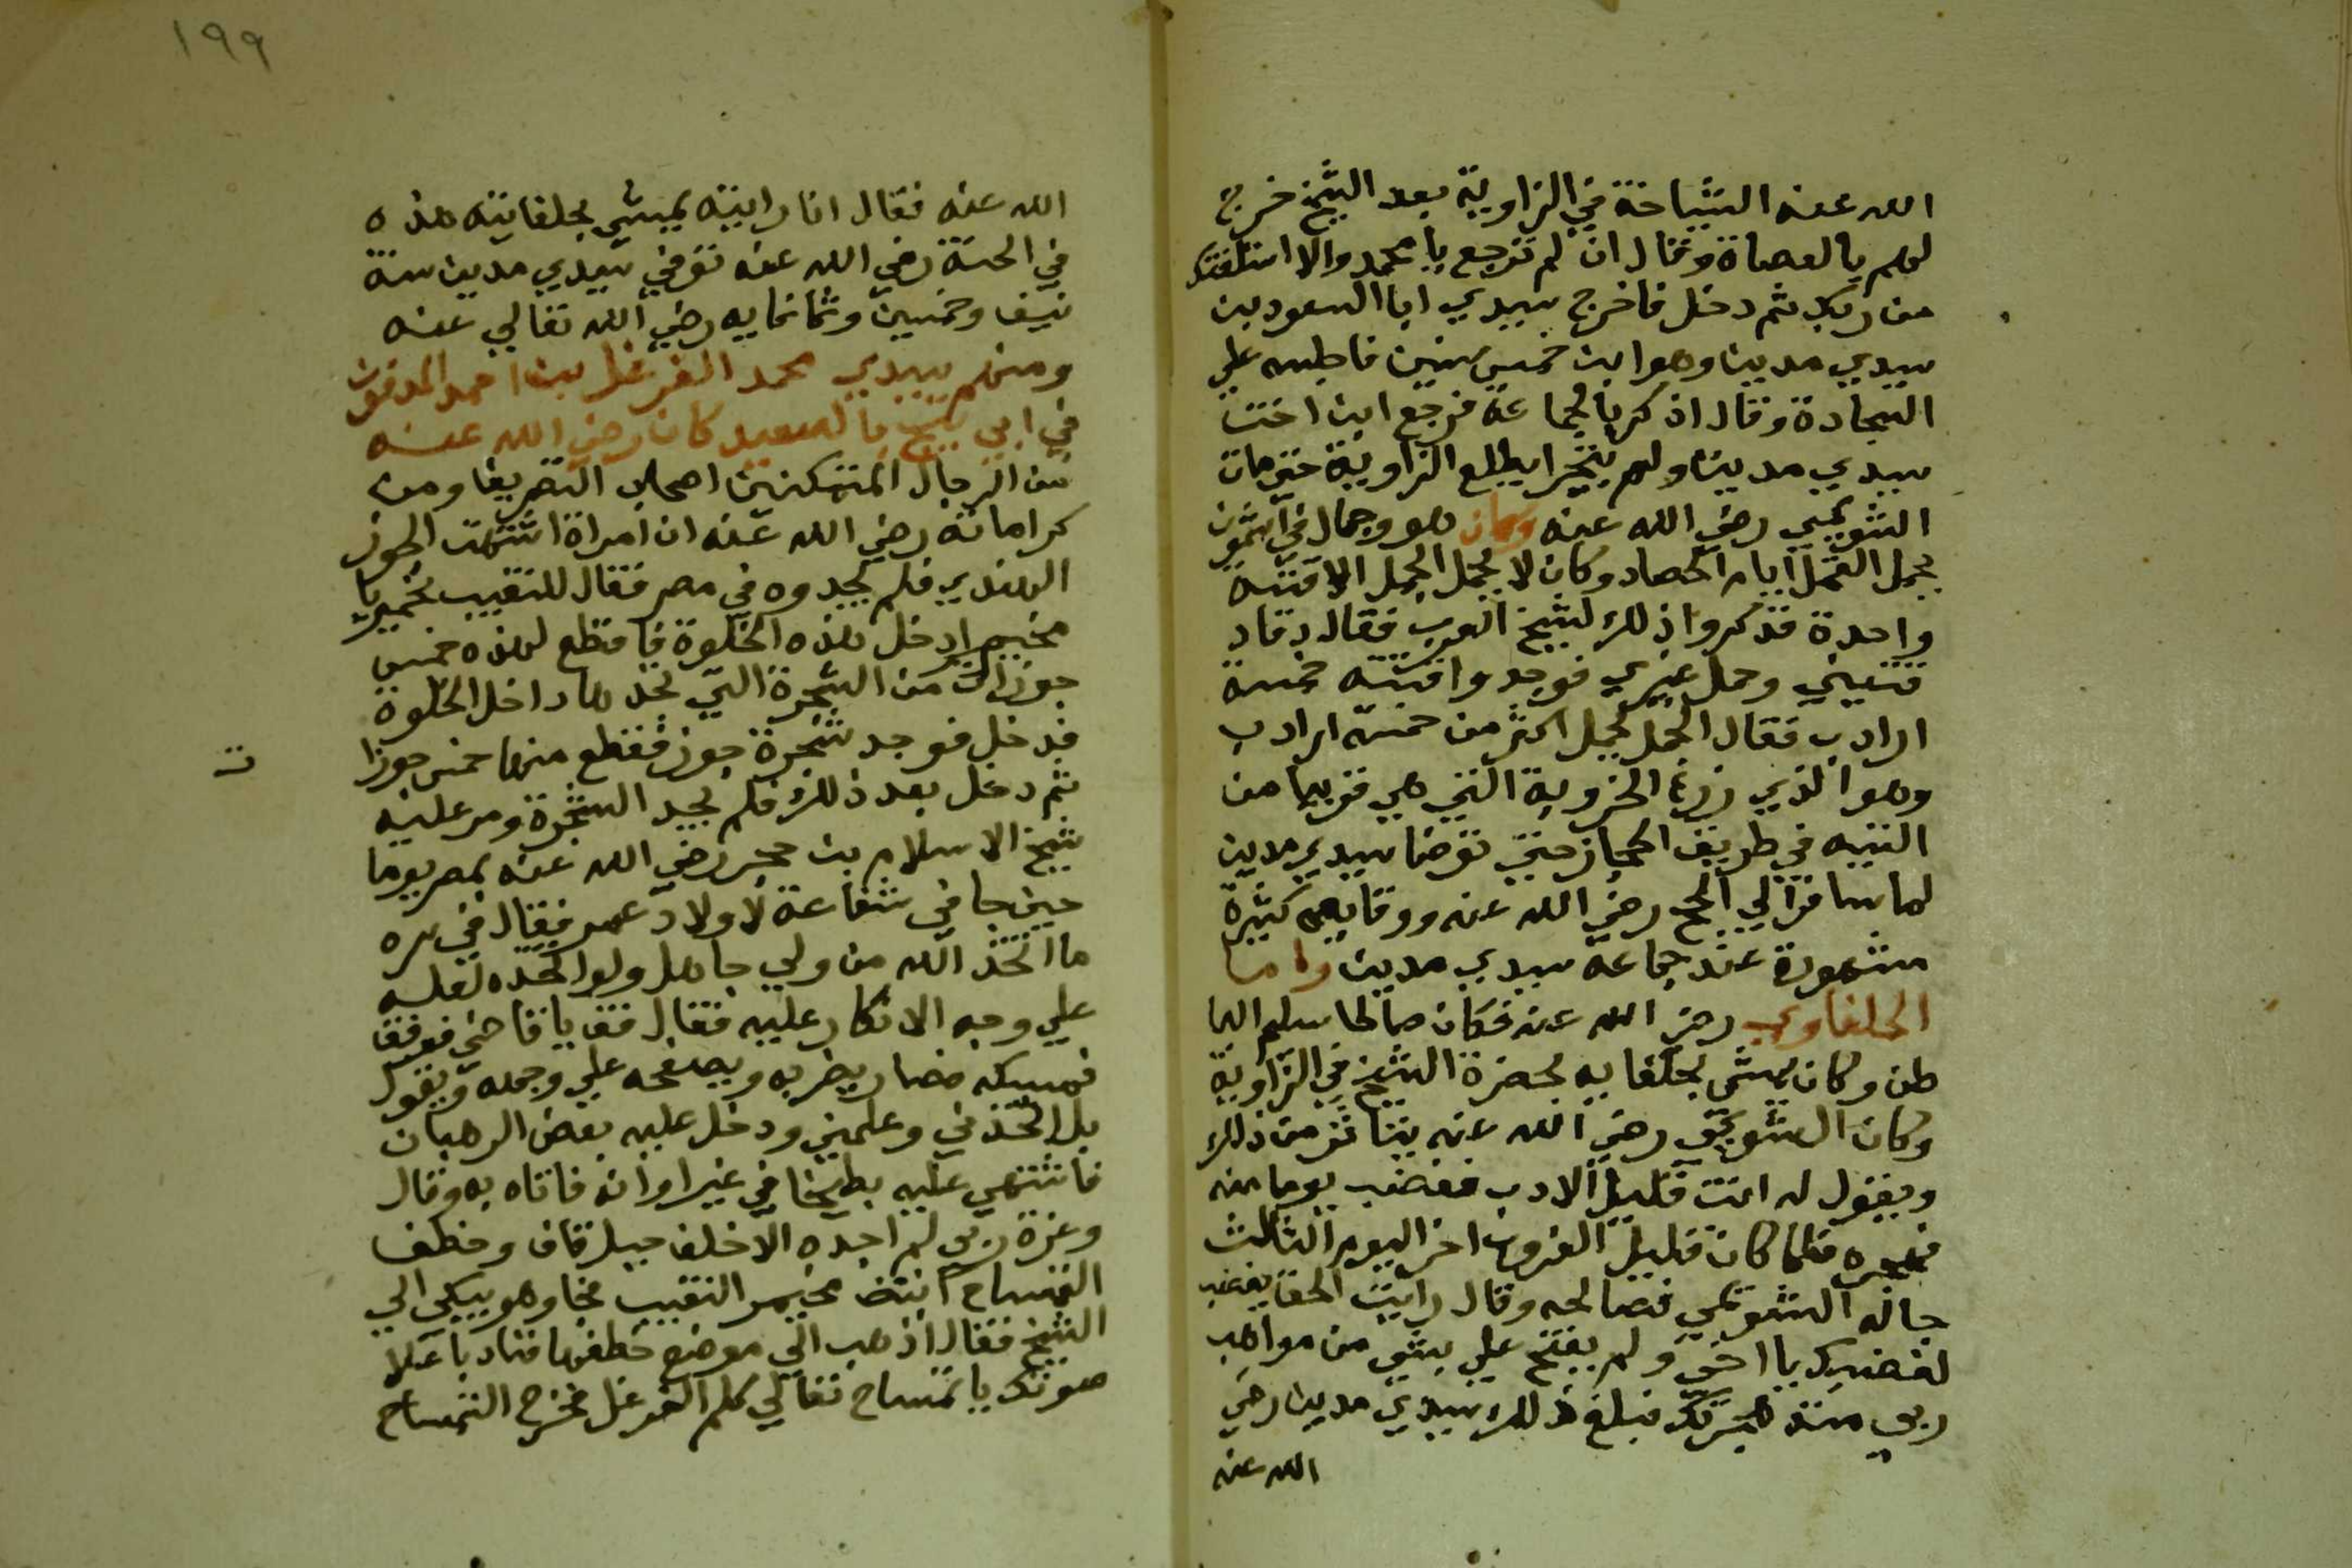 الله عنه الشياخة في الزاوية بعد الشيخ خرج
لهم بالعصاة وقال ان لم ترجع يا محمد والا استلفتك
من ربك ثم دخل فاخرج سيدي ابا السعود بن
سيدي مدين وهو ابن خمس سنين فاجلسه علي
السجادة وقال اذكر بالجماعة فرجع ابن اخت
سيدي مدين ولم يتجرا يطلع الزاوية حتي مات
الشويمي رضي الله عنه وكان هو وجمال في اشمون
يحمل القمل ايام الحصاد وكان لا يحمل الجمل الا قتته
واحدة فذكروا ذلك لشيخ العرب فقال دقاد
قتتي وحمل غيري فوجدوا قتته خمسة
ارادب فقال الجمل يحمل اكثر من خمسة ارادب
وهو الذي زرع الخروبة التي هي قريبا من
التيه في طريق الحجاز حتي توضا سيدي مدين
لما سافر الي الحج رضي الله عنه ووقايعهم كثيرة
مشهورة عند جماعة سيدي مدين واما
الحلفاوي رضي الله عنه فكان صالحا سليم البا
طن وكان يمشي بحلفايه بحضرة الشيخ في الزاوية
وكان الشويمي رضي الله عنه يتاثر من ذلك
ويقول له انت قليل الادب فغضب يوما منه
فهجره فلما كان قبيل الغروب اخر اليوم الثالث
جا له الشويمي فصالحه وقال رايت الحق يغضب
لغضبك يا اخي ولم يفتح علي بشي من مواهب
ربي منذ هجرتك فبلغ ذلك سيدي مدين رضي
الله عنه
١٩٩
الله عنه فقال انا رايته يمشي بحلفايته هذه
في الجنة رضي الله عنه توفي سيدي مدين سنة
نيف وخمسين وثمانمايه رضي الله تعالي عنه
ومنهم سيدي محمد الفرغل بن احمد المدفون
في ابي تيج بالصعيد كان رضي الله عنه
من الرجال المتمكنين اصحاب التصريف ومن
كراماته رضي الله عنه ان امراة اشتهت الجوز
الهندي فلم يجدوه في مصر فقال للنقيب مخيمر يا
مخيمر ادخل هذه الخلوة فاقطع لهذه خمس
جوزات من الشجرة التي تجدها داخل الخلوة
فدخل فوجد شجرة جوز فقطع منها خمس جوزا
ت
ثم دخل بعد ذلك فلم يجد الشجرة ومر عليه
شيخ الاسلام بن حجر رضي الله عنه بمصر يوما
حين جا في شفاعة لاولاد عمر فقال في سره
ما اتخذ الله من ولي جاهل ولو اتخذه لعلمه
علي وجه الانكار عليه فقال قف يا قاضي فوقف
فمسكه فصار يضربه ويصفعه علي وجهه ويقول
بل اتخذني وعلمني ودخل عليه بعض الرهبان
فاشتهي عليه بطيخا في غير اوانه فاتاه به وقال
وعزة ربي لم اجده الا خلف جبل قاف وخطف
التمساح ابنة مخيمر النقيب فجا وهو يبكي الي
الشيخ فقال اذهب الي موضع خطفها فناد باعلا
صوتك يا تمساح تعالي كلم الفرغل فخرج التمساح